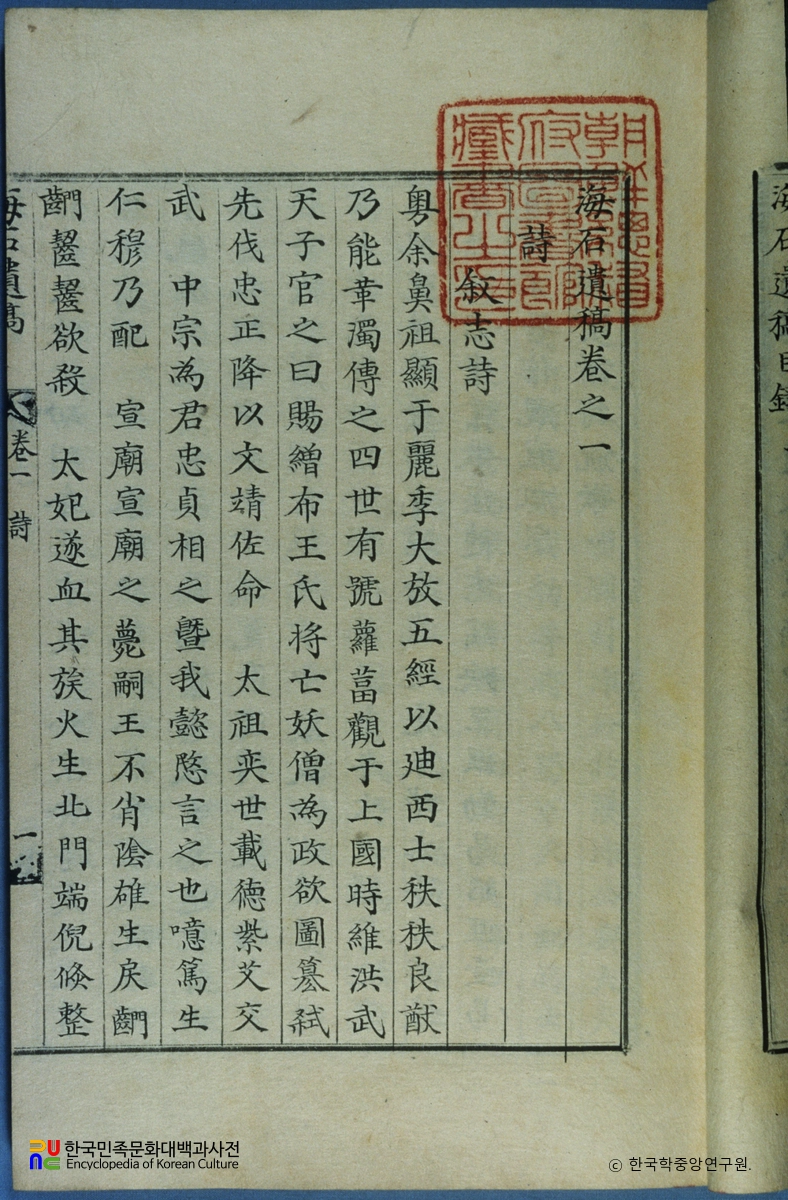 海石遺稿目錄
朝鮮總督
府圖書館
藏書之印
海石遺稿卷之一
詩
叙志詩
粤余鼻祖顯于麗季大放五經以迪西士秩秩良猷
乃能革濁傳之四世有號蘿葍觀于上國時維洪武
天子官之曰賜繒布王氏将亡妖僧為政欲圖簒弑
先伐忠正降以文靖佐命 太祖奕世載德紫艾交
武 中宗為君忠貞相之曁我懿愍言之也噫篤生
仁穆乃配 宣廟宣廟之薨嗣王不肖陰雄生戾
齧齧欲殺 太妃遂血其族火生北門端倪倏整
海石遺稿 卷一 詩 一
한국민족문화대백과사전
Encyclopedia of Korean Culture
© 한국학중앙연구원.